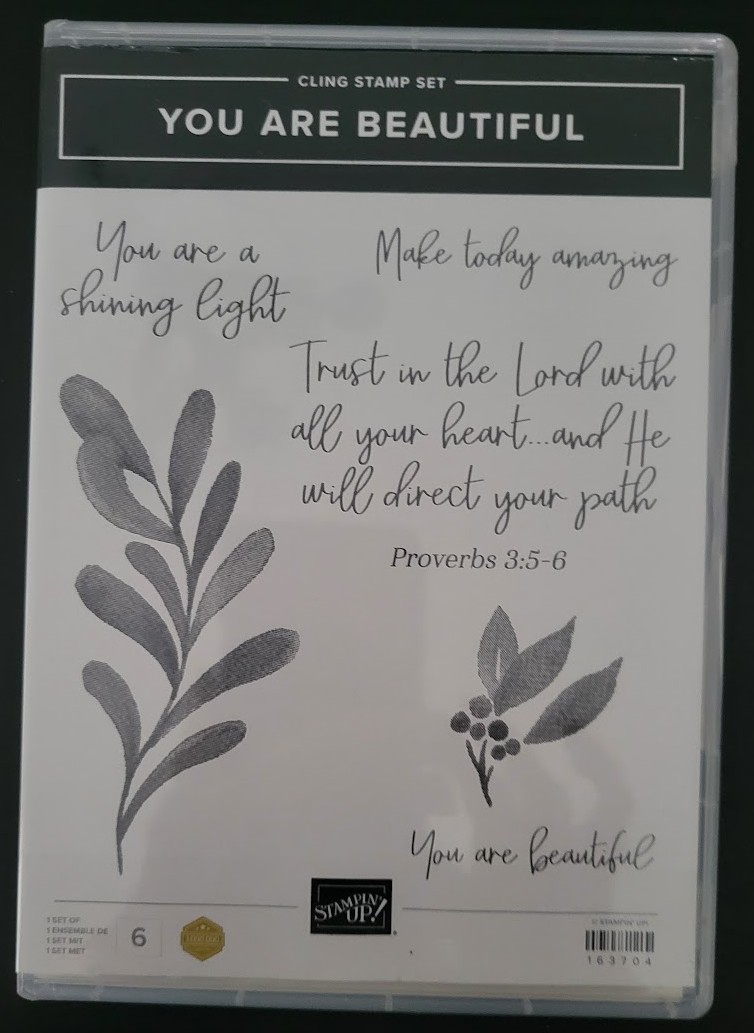 CLING STAMP SET
YOU ARE BEAUTIFUL
You are a
shining light
Make today amazing
Trust in the Lord with
all your heart...and He
will direct your path
Proverbs 3:5-6
You are beautiful
STAMPIN'
UP!
1 SET OF
1 ENSEMBLE DE
1 SET MIT
1 SET MET
6
© STAMPIN' UP!
163704